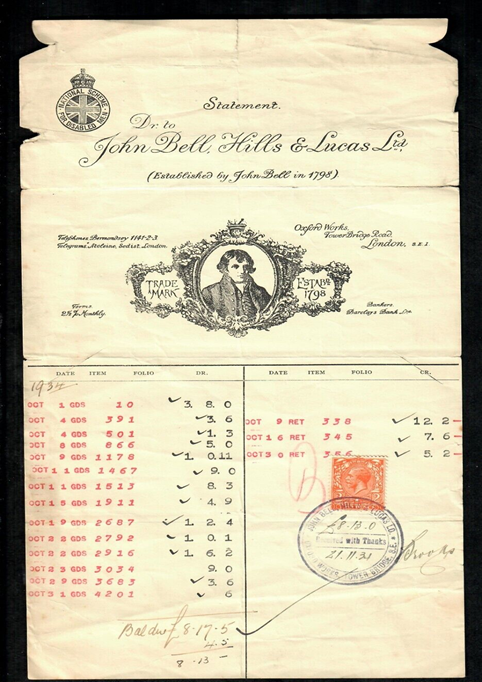 NATIONAL SCHEME
FOR DISABLED MEN
Statement.
Dr. to
John Bell, Hills & Lucas Ltd.
(Established by John Bell in 1798)
Telephones Bermondsey 1141-2-3
London.
Oxford Works,
Tower Bridge Road,
London, S.E.1
TRADE MARK
ESTABD 1798
Terms
2½% Monthly.
Bankers
Barclays Bank Ltd
DATE ITEM FOLIO DR. DATE ITEM FOLIO CR.
1934
OCT 1 GDS 10 3. 8. 0
OCT 4 GDS 391 3. 6
OCT 4 GDS 501 1. 3
OCT 8 GDS 866 5. 0
OCT 9 GDS 1178 1. 0. 11
OCT 11 GDS 1467 9. 0
OCT 11 GDS 1513 8. 3
OCT 15 GDS 1911 4. 9
OCT 19 GDS 2687 1. 2. 4
OCT 22 GDS 2792 1. 0. 1
OCT 22 GDS 2916 1. 6. 2
OCT 23 GDS 3034 9. 0
OCT 29 GDS 3683 3. 6
OCT 31 GDS 4201 6
OCT 9 RET 338 12. 2
OCT 16 RET 345 7. 6
OCT 30 RET 356 5. 2
JOHN BELL, HILLS & LUCAS LD.
£8.13.0
Received with Thanks
TOWER BRIDGE, S.E.
8-17-5
4.5
8-13-